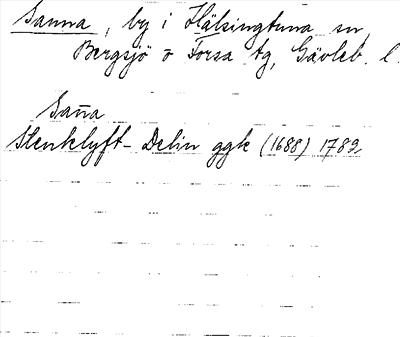 Sanna, by i Hälsingtuna sn,
Bergsjö o Forsa tg, Gävleb. l.
San̄a
Stenklyft - Delin ggk (1688) 1789,